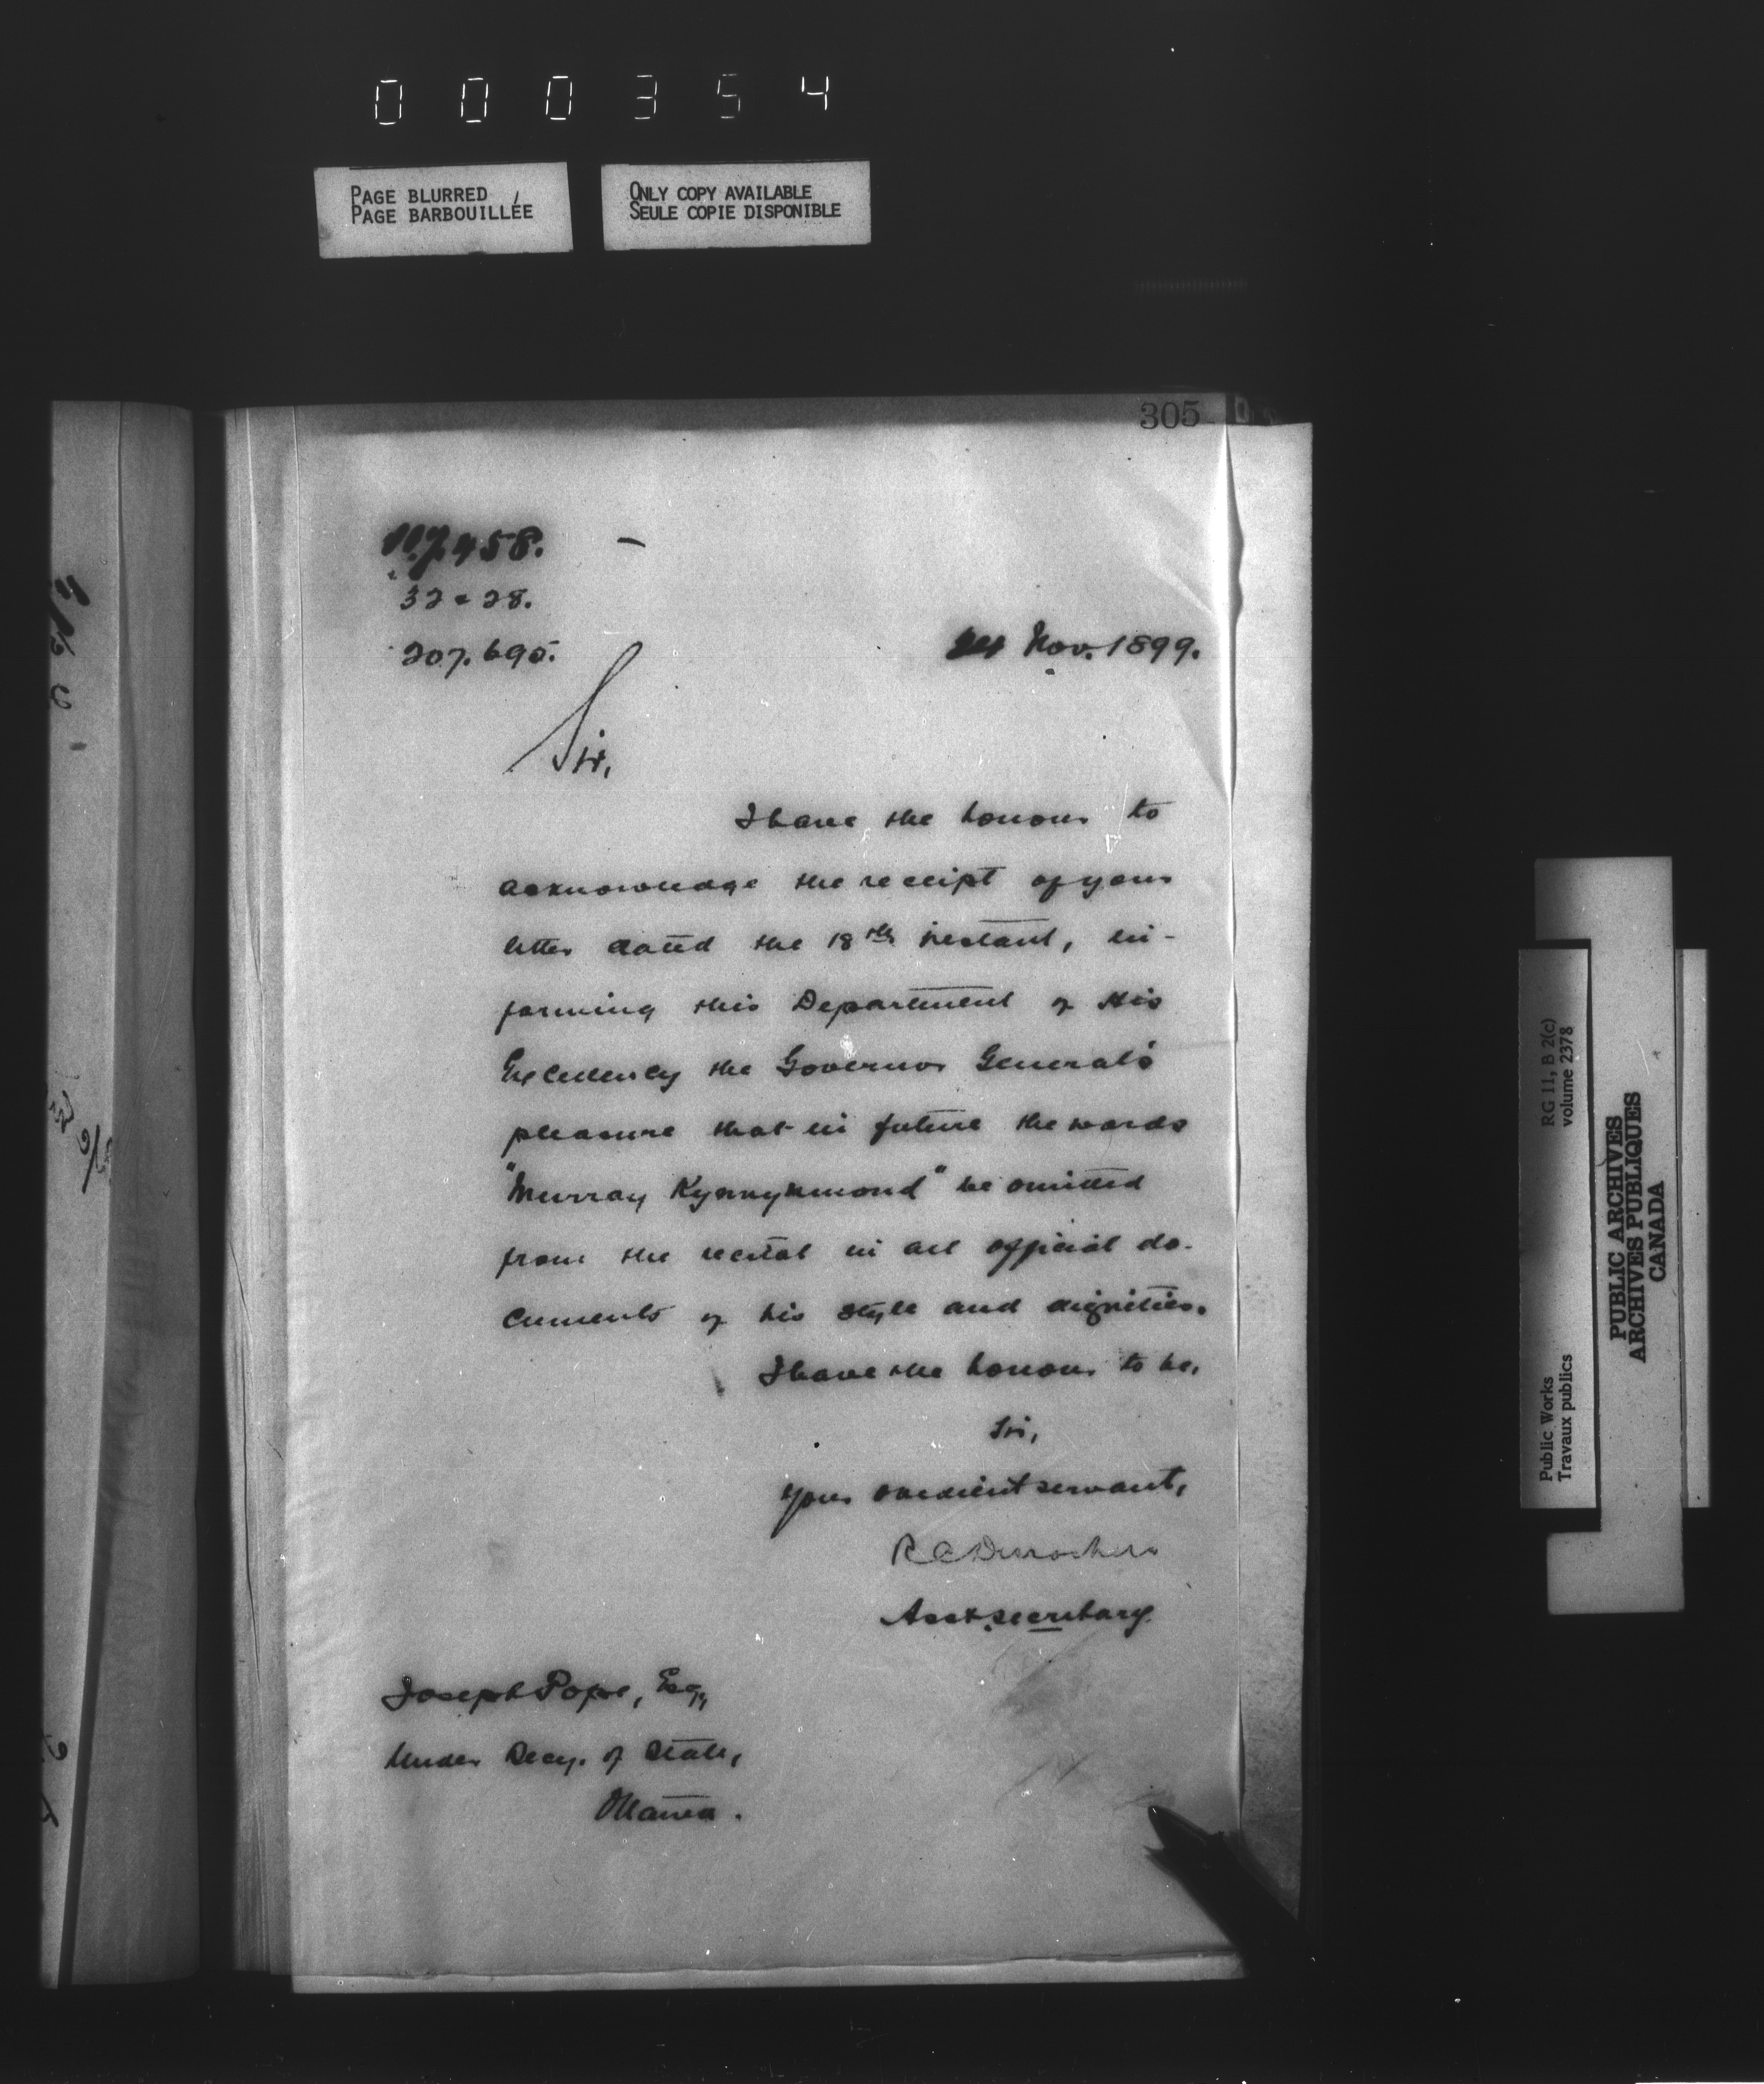 000354
PAGE BLURRED
PAGE BARBOUILLÉE
ONLY COPY AVAILABLE
SEULE COPIE DISPONIBLE
305
458.
32 = 28.
207.695.
Nov. 1899.
Sir,
I have the honour to
acknowledge the receipt of your
letter dated the 18th instant, in-
forming this Department of His
Excellency the Governor General's
pleasure that in future the words
"Murray Kynnynmond" be omitted
from the recital in all official do-
cuments of his style and dignities.
I have the honour to be,
Sir,
Your obedient servant,
R C Desrochers
Asst Secretary.
Joseph Pope, Esq.,
Under Secy. of State,
Ottawa.
Public Works
Travaux publics
RG 11, B 2(c)
volume 2378
PUBLIC ARCHIVES
ARCHIVES PUBLIQUES
CANADA